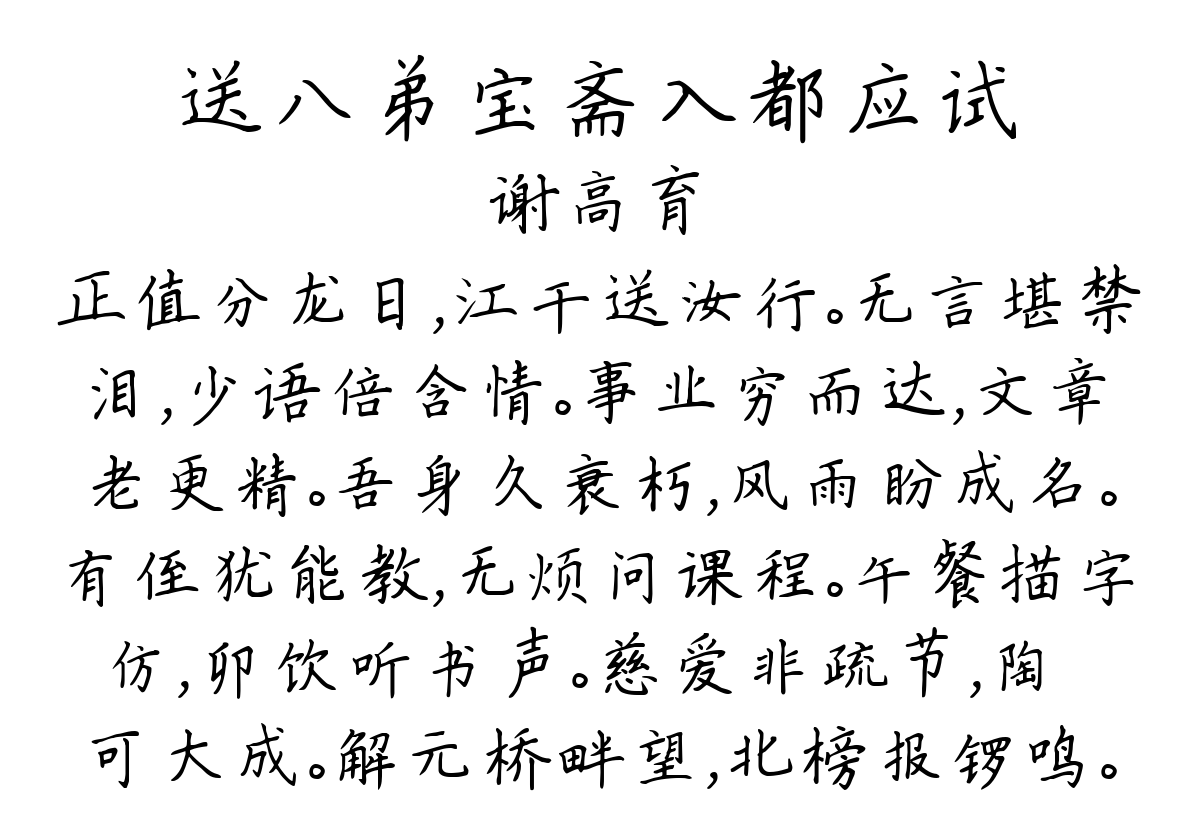 送八弟宝斋入都应试
谢高育
正值分龙日,江干送汝行。无言堪禁
泪,少语倍含情。事业穷而达,文章
老更精。吾身久衰朽,风雨盼成名。
有侄犹能教,无烦问课程。午餐描字
仿,卯饮听书声。慈爱非疏节,陶
可大成。解元桥畔望,北榜报锣鸣。